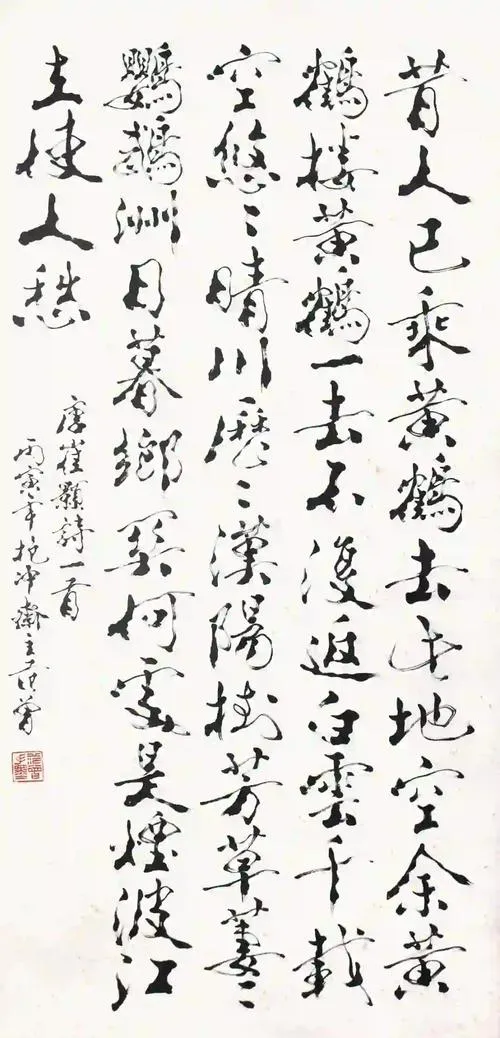 昔人已乘黄鶴去此地空余黄
鶴楼黄鶴一去不復返白雲千載
空悠〻晴川歷〻漢陽樹芳草萋〻
鸚鵡洲日暮鄉關何處是煙波江
上使人愁
唐崔顥詩一首
丙寅年抱冲齋主范曾